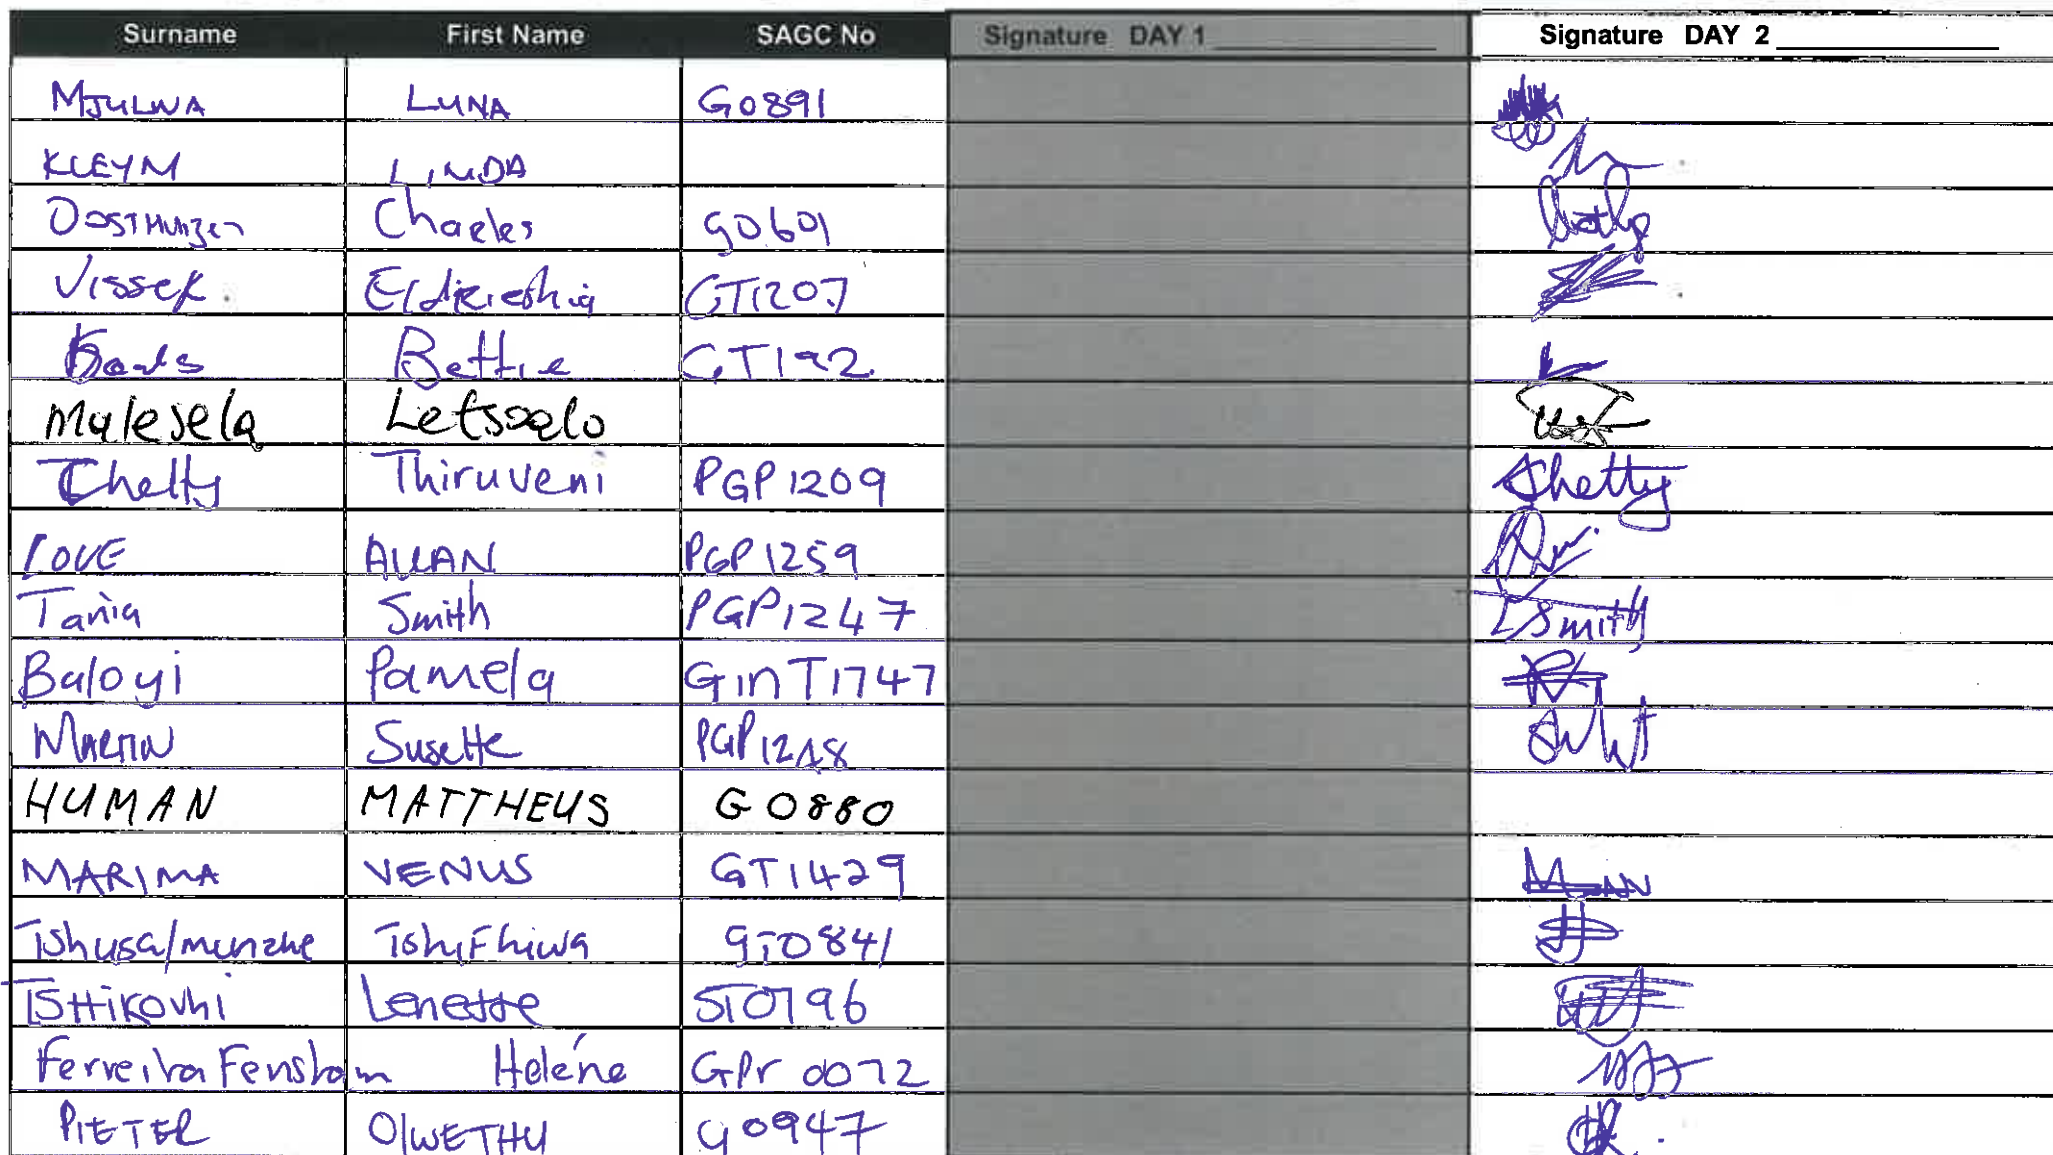 Surname First Name SAGC No Signature DAY 1 Signature DAY 2
MJULWA LUNA G0891
KLEYM LINDA
OOSTHUIZEN Charles G0601
Visser GT1207
Bettie GT192
Malesela Letsoalo
Chetty Thiruveni PGP1209 Chetty
LOVE ALLAN PGP1259
Tania Smith PGP1247 TSmith
Baloyi Pamela GinT1747
MARTIN Susette PGP1248
HUMAN MATTHEUS G0880
MARIMA VENUS GT1429
Tshifhiwa GT0841
TSHIKOVHI Lenette ST0796
Ferreira Fensham Heléne GPr 0072
PIETER OlWETHU G0947